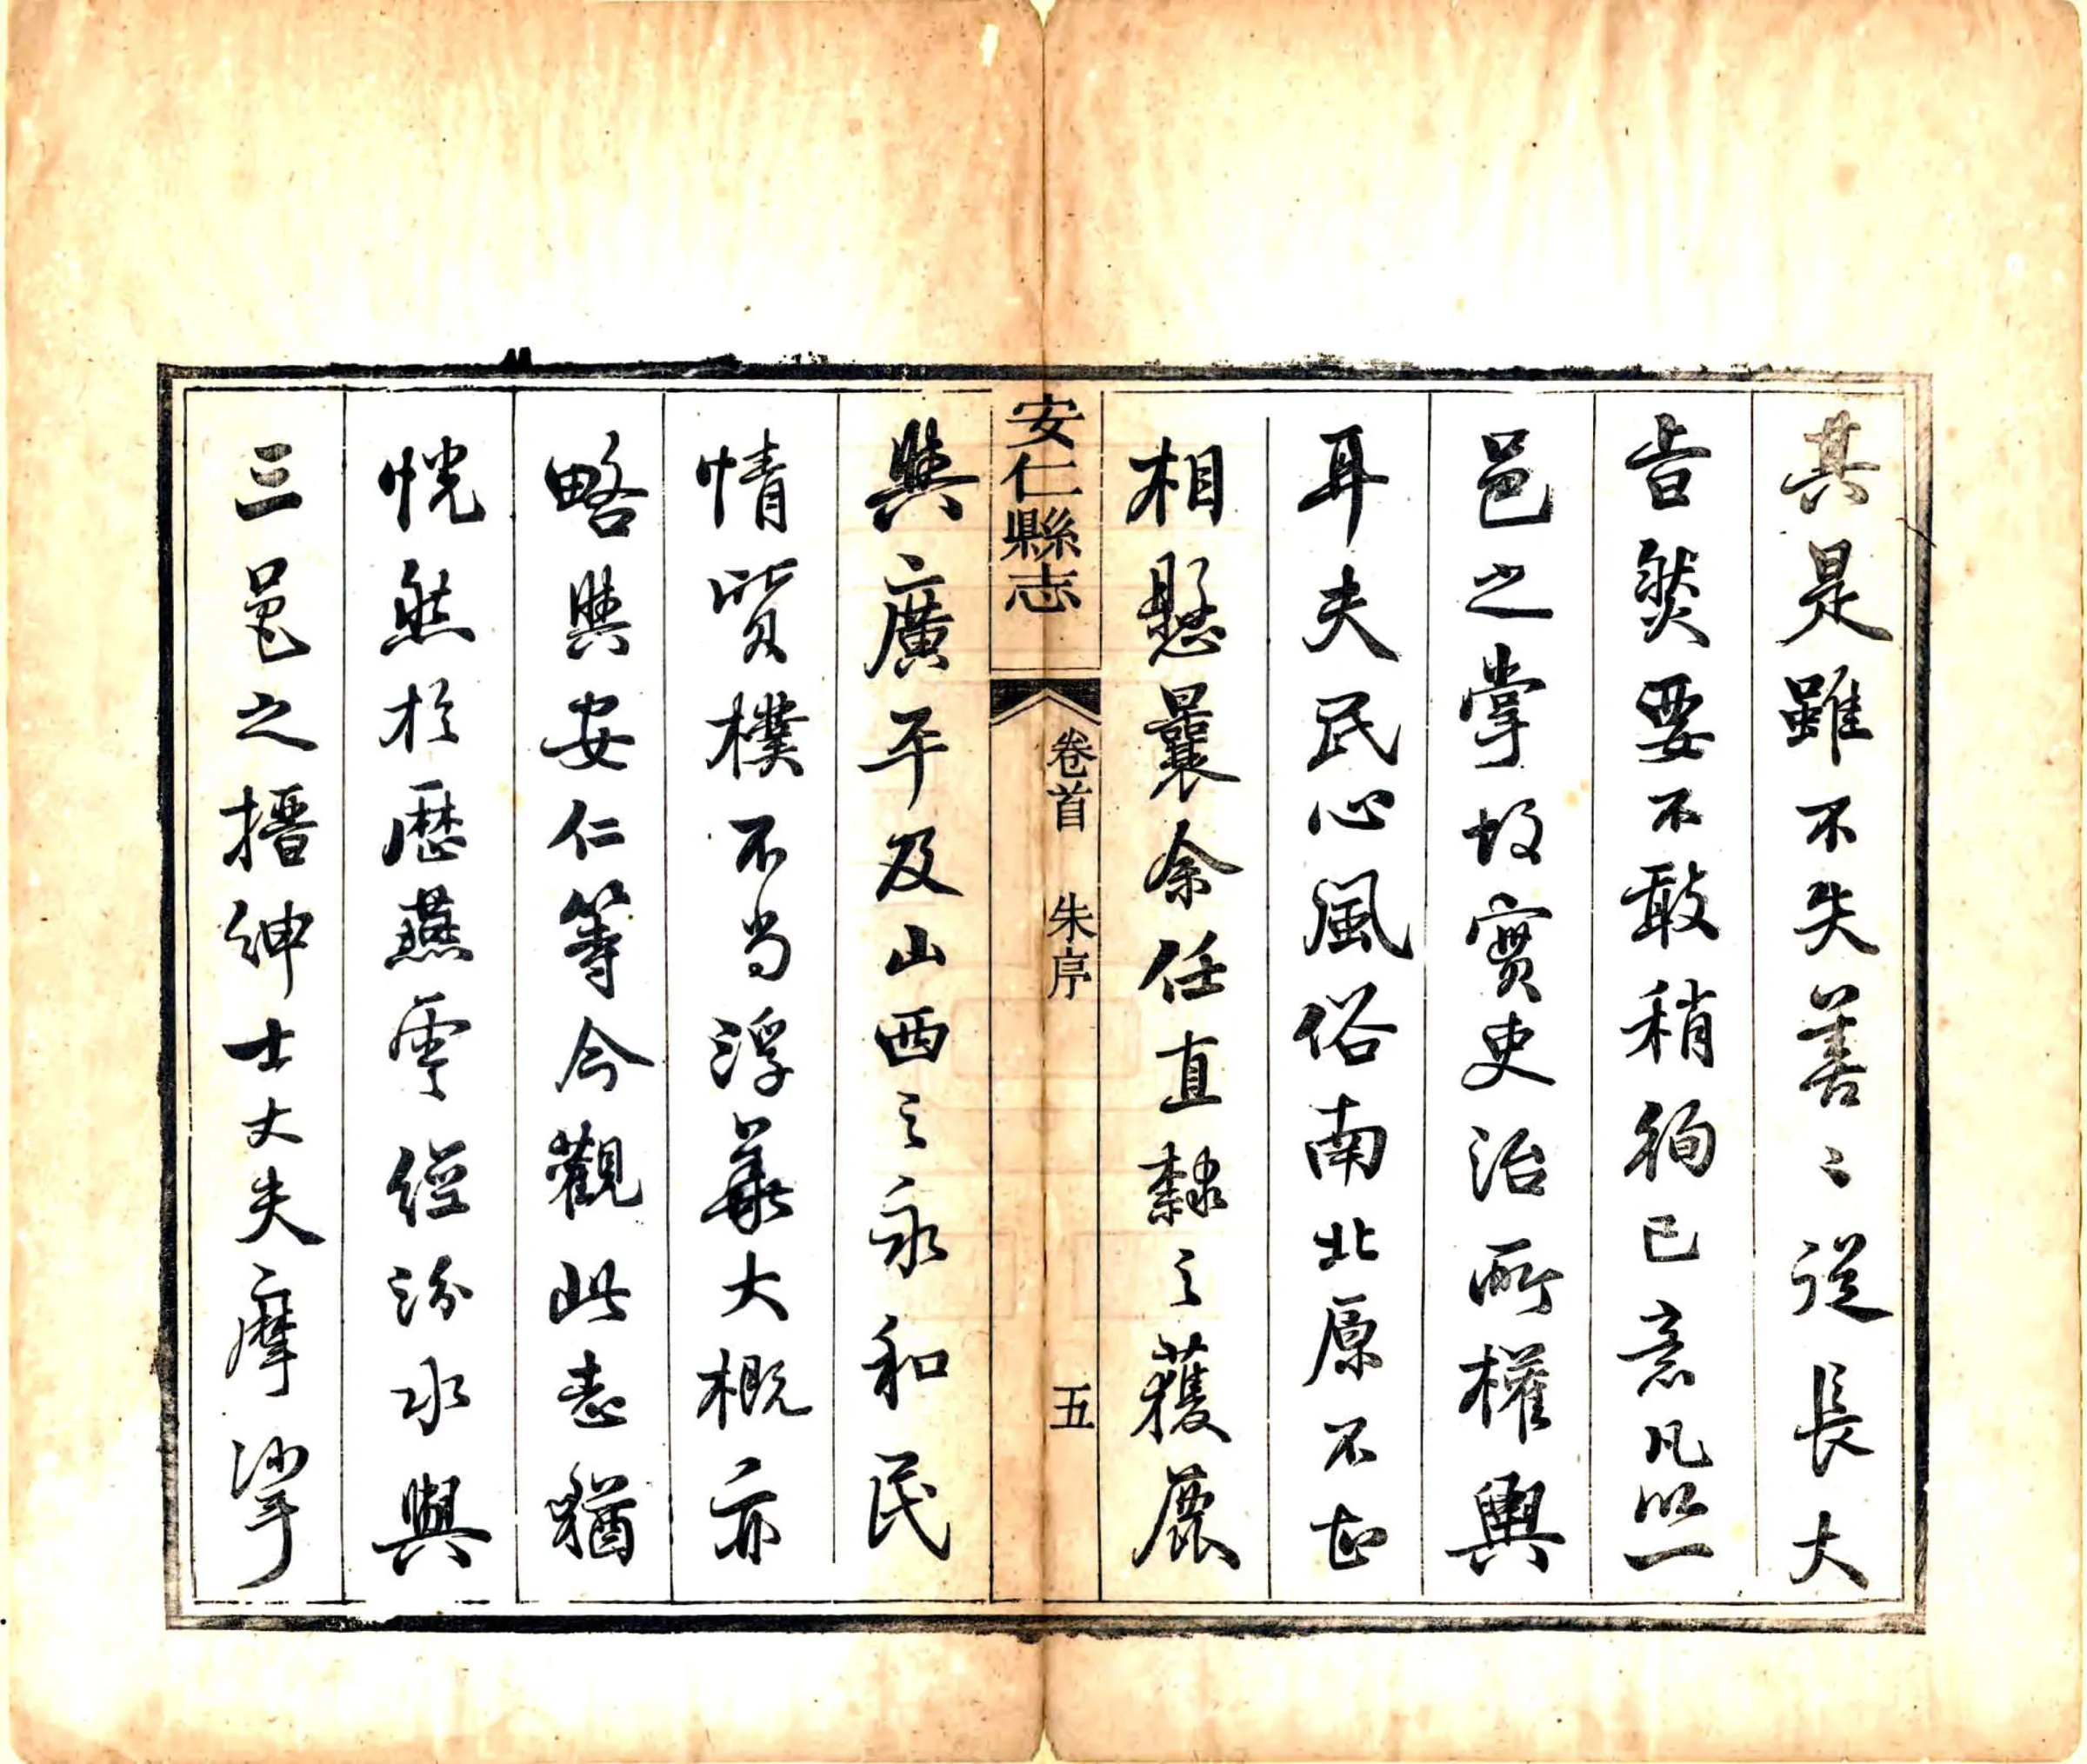 其是雖不失善善從長大
旨然要不敢稍徇己意凡以一
邑之掌故實史治所權輿
耳夫民心風俗南北原不甚
相懸曩余任直隸之獲鹿
安仁縣志 卷首 朱序 五
與廣平及山西之永和民
情質樸不尚浮華大概亦
略與安仁等今觀此志猶
恍然於歷燕雲經汾水與
三邑之搢紳士丈夫摩挲